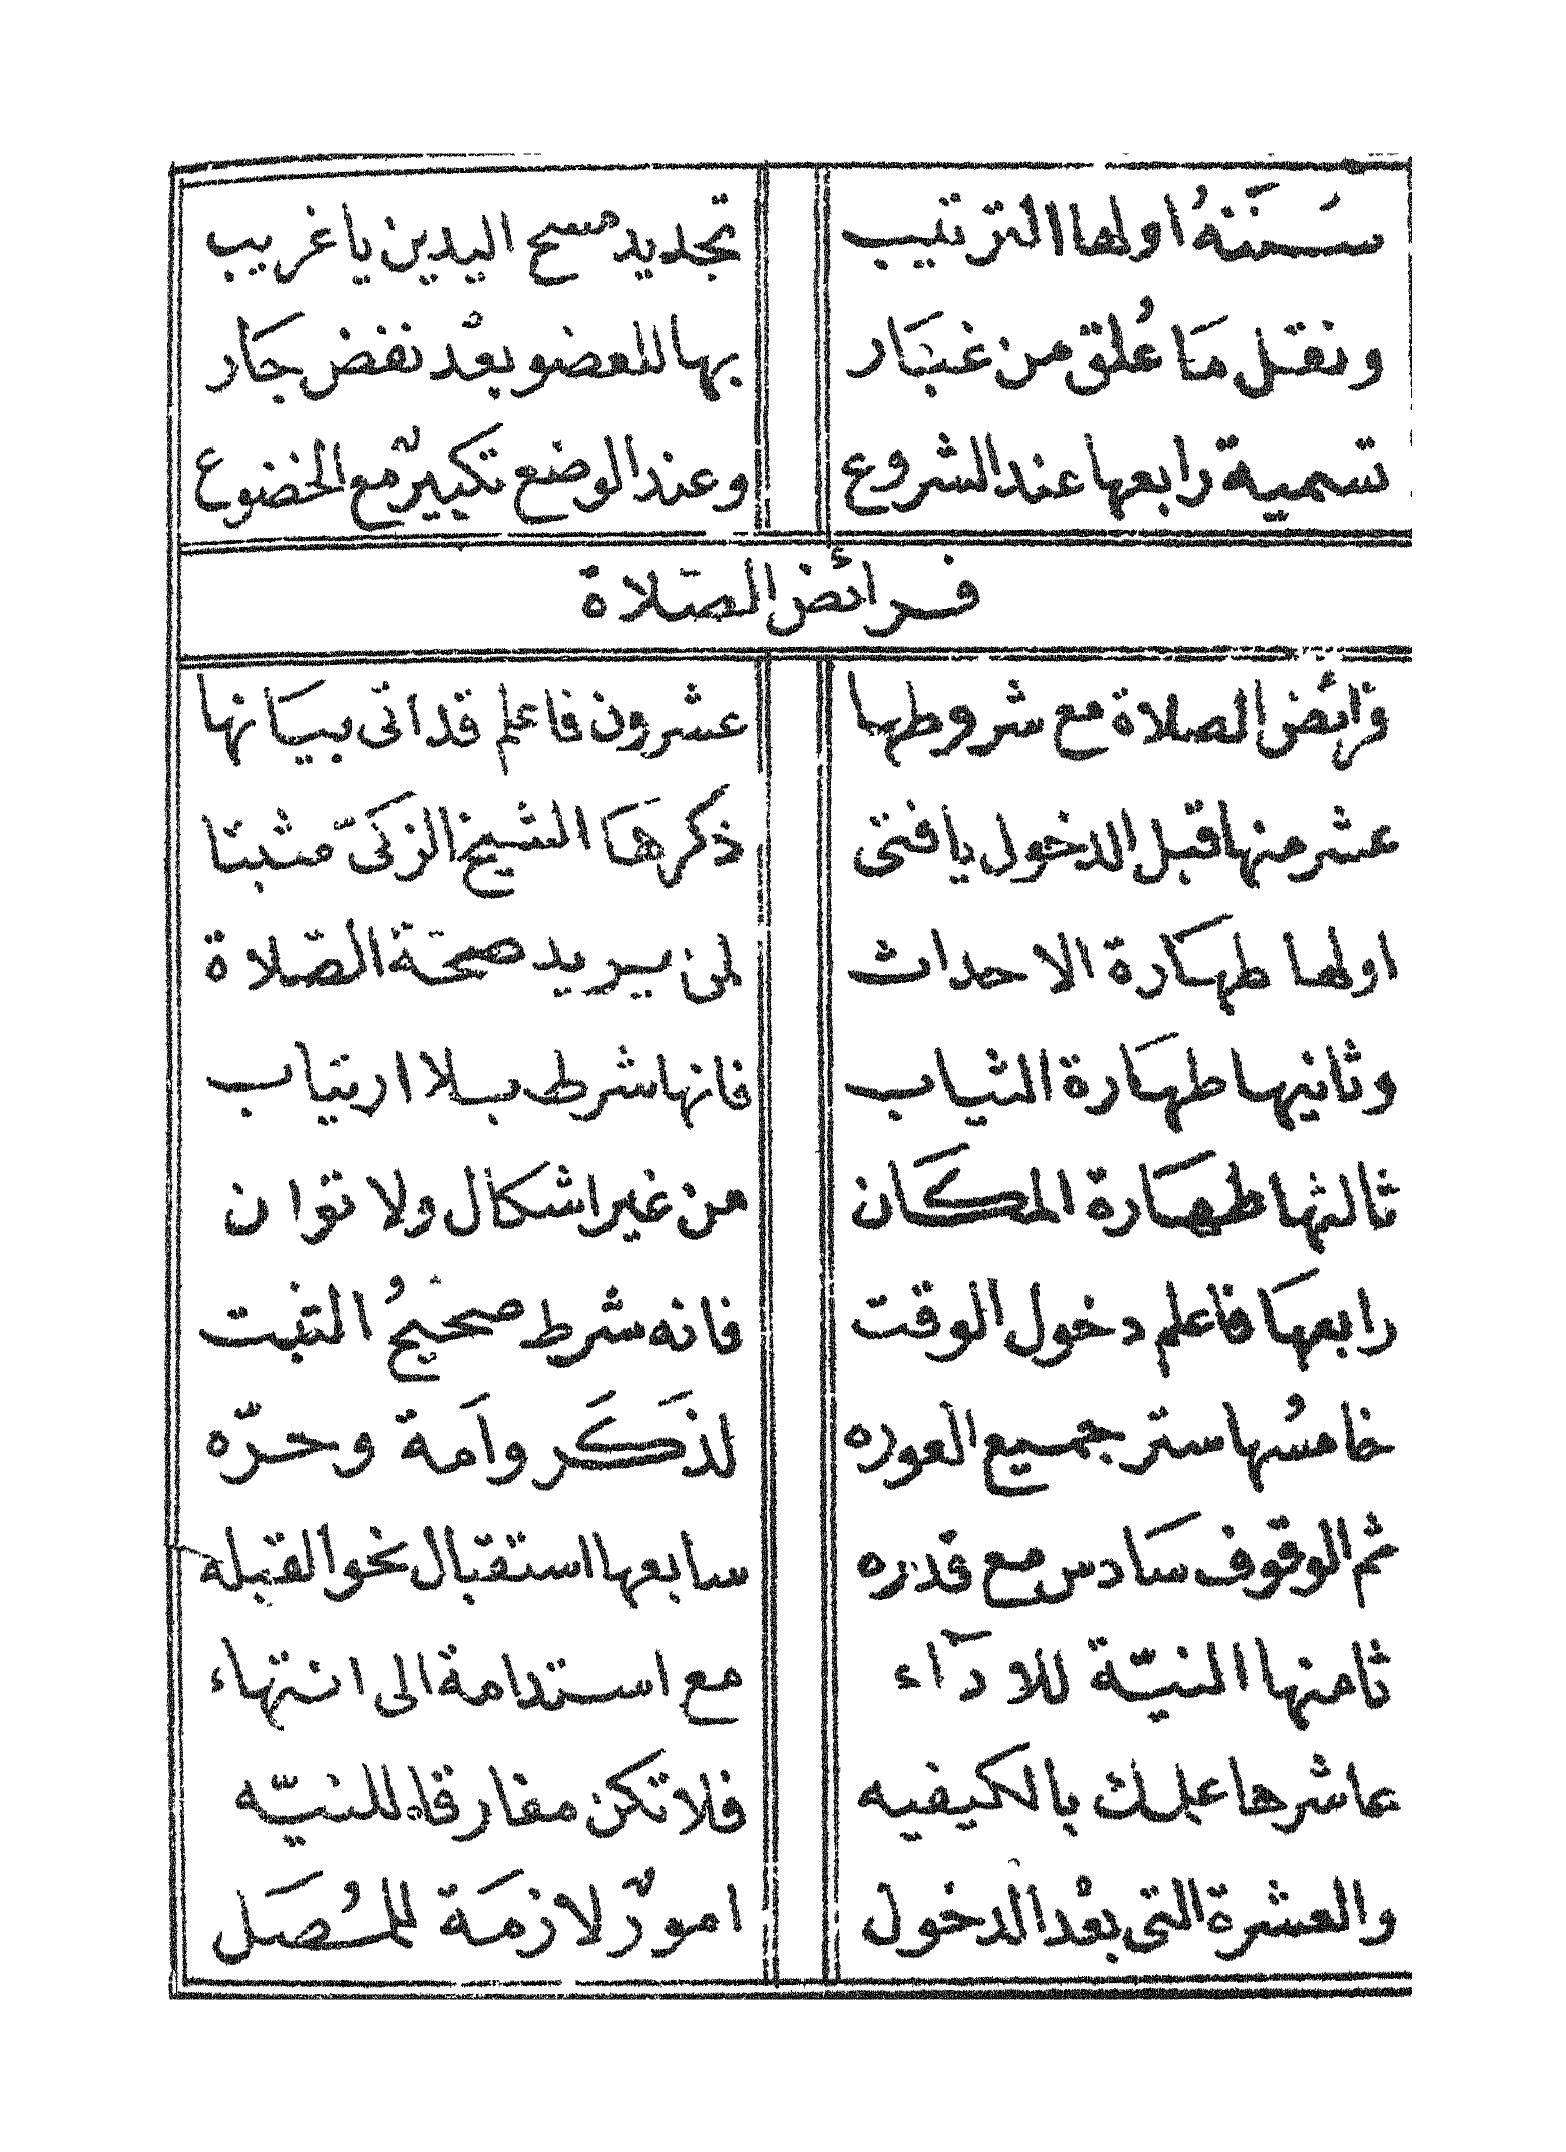 سننهُ اولها الترتيب تجديد مسح اليدين يا غريب
ونقل مَا عُلق من غبَار بها للعضو بعْد نفض جَار
تسمية رابعها عند الشروع وعند الوضع تكبيرٌ مع الخضوع
فرائض الصّلاة
فرائض الصلاة مع شروطها عشرون فاعلم قد اتى بيَانها
عشر منها قبل الدخول يا فتى ذكرهَا الشيخ الزكَىّ مثبتا
اولها طهَارة الاحداث لمن يريد صحة الصّلاة
وثانيها طهَارة الثياب فانها شرط بلا ارتياب
ثالثها طهَارة المكَان من غير اشكال ولا توان
رابعهَا فاعلم دخول الوقت فانه شرط صحيحُ الثبت
خامسُها ستر جميع العوره لذكَر واَمة وحرّه
ثم الوقوف سَادس مع قدره سابعها استقبال نحو القبله
ثامنها النيّة للادآء مع استدامة الى انتهاء
عاشرها علمك بالكيفيه فلا تكن مفارقا للنيّه
والعشرة التى بعْد الدخول امورٌ لازمَة للمُصَل